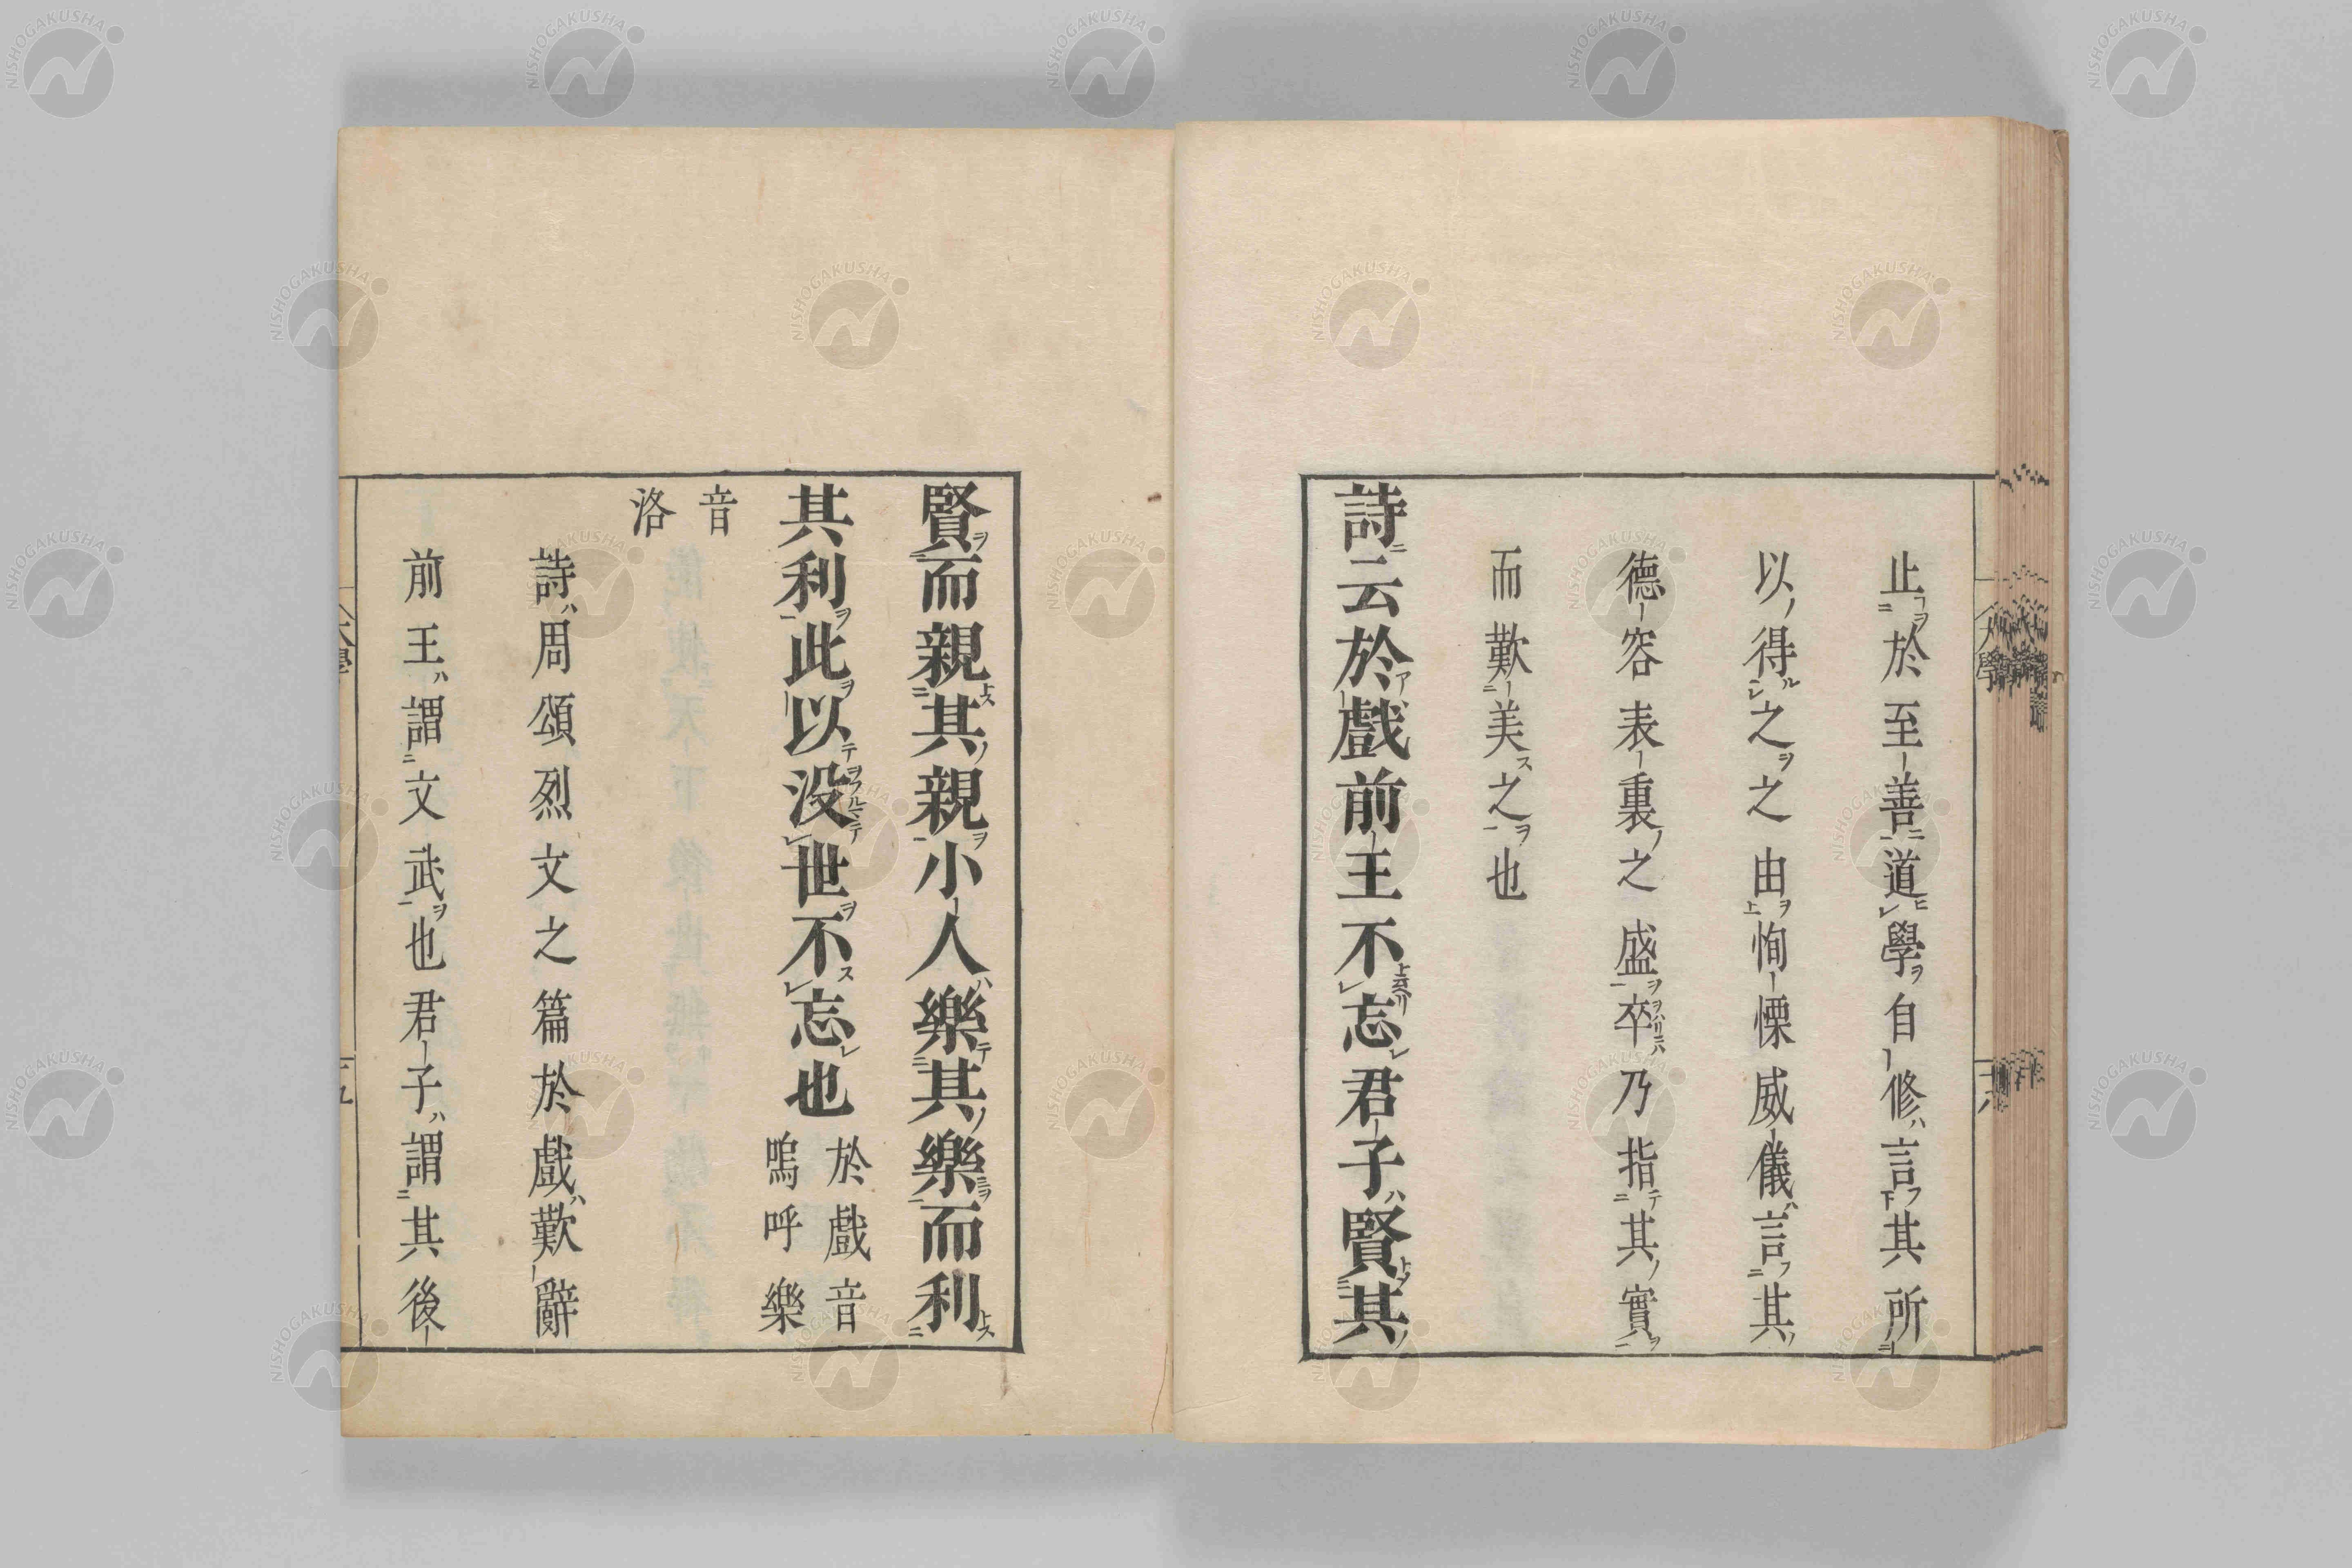 止於至善道學自修言其所
以得之之由恂慄威儀言其
德容表裏之盛卒乃指其實
而歎美之也
詩云於戲前王不忘君子賢其
賢而親其親小人樂其樂而利
其利此以沒世不忘也
於戲音
嗚呼樂
音
洛
詩周頌烈文之篇於戲歎辭
前王謂文武也君子謂其後
NISHOGAKUSHA